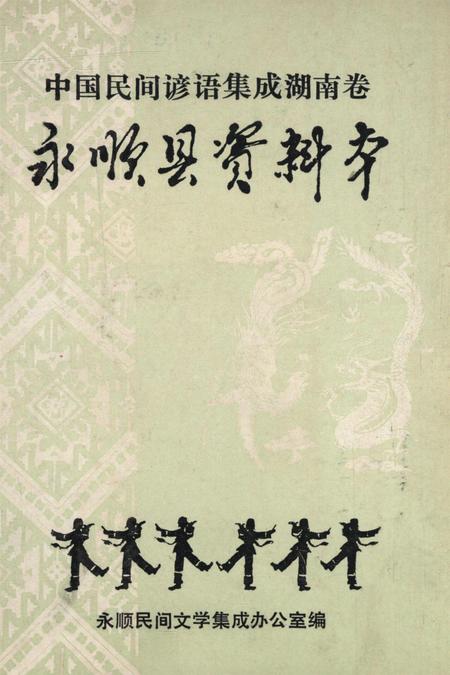 中国民间谚语集成湖南卷
永顺县资料本
永顺民间文学集成办公室编